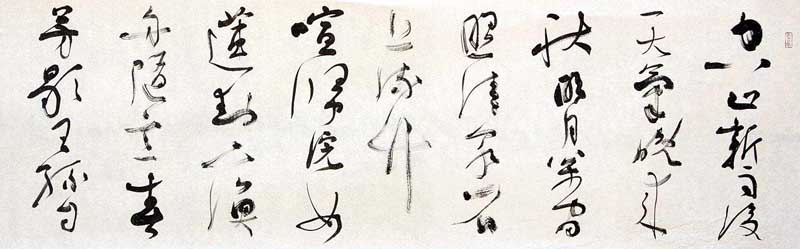 空山新雨後
天氣晚來
秋明月松間
照清泉石
上流竹
喧歸浣女
蓮動下漁
舟隨意春
芳歇王孫自